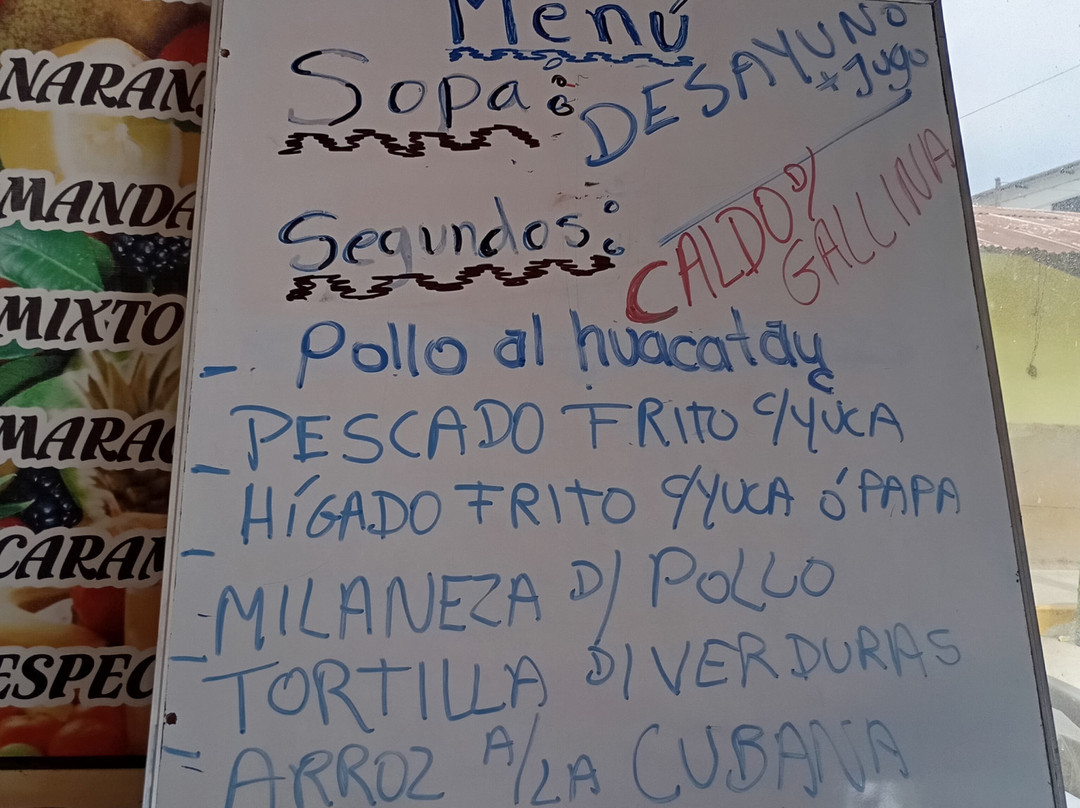 Menú
Sopa:
DESAYUNO
+ Jugo
CALDO D/
GALLINA
Segundos:
- Pollo al huacatay
- PESCADO FRITO C/YUCA
- HÍGADO FRITO C/YUCA Ó PAPA
- MILANEZA D/ POLLO
- TORTILLA D/ VERDURAS
- ARROZ A/LA CUBANA
NARAN
MANDA
MIXTO
MARAC
CARAM
ESPEC